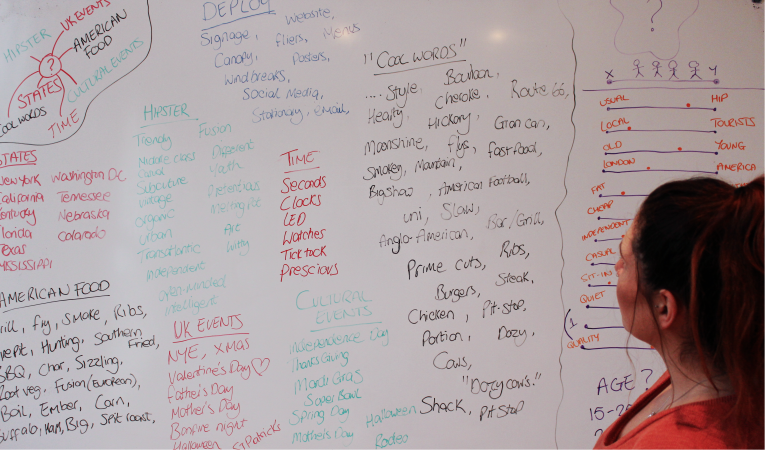 UK EVENTS
HIPSTER
AMERICAN
FOOD
?
CULTURAL EVENTS
STATES
COOL WORDS
TIME
DEPLOY
Signage, Website,
Fliers, Menus
Canopy, Posters,
Windbreaks,
Social Media,
Stationary, Email,
STATES
New York Washington DC
California Tennessee
Kentucky Nebraska
Florida Colorado
Texas
Mississippi
HIPSTER
Trendy Fusion
Middle class Different
Casual Youth
Subculture Pretentious
Village Melting Pot
Organic
Urban Art
Transatlantic Witty
Independent
Open-minded
Intelligent
TIME
Seconds
Clocks
LED
Watches
Tick tock
Prescious
"COOL WORDS"
.... Style, Bourbon,
Hearty, Cherokee, Route 66,
Hickory, Gran can,
Moonshine, fast food,
Smokey, Mountain,
Bigshow, American Football,
Uni, Slaw,
Anglo-American, Bar/Grill,
Prime cuts, Ribs,
Burgers, Steak,
Chicken, Pit-Stop,
Portion, Dozy,
Cows,
"Dozy cows."
Shack, Pit Stop
AMERICAN FOOD
Grill, Fry, Smoke, Ribs,
Hunting, Southern Fried,
BBQ, Char, Sizzling,
Root veg, Fusion (European),
Boil, Ember, Corn,
Buffalo, Ham, Big, Spit roast,
UK EVENTS
NYE, XMAS
Valentine's Day
Father's Day
Mother's Day
Bonfire night
Halloween St Patricks
CULTURAL
EVENTS
Independence Day
Thanksgiving
Mardi Gras
Super Bowl
Spring Day
Mother's Day
Halloween
Rodeo
?
X Y
USUAL HIP
LOCAL TOURISTS
OLD YOUNG
LONDON AMERICA
FAT
CHEAP
INDEPENDENT
CASUAL
SIT-IN
QUIET
1
QUALITY
AGE?